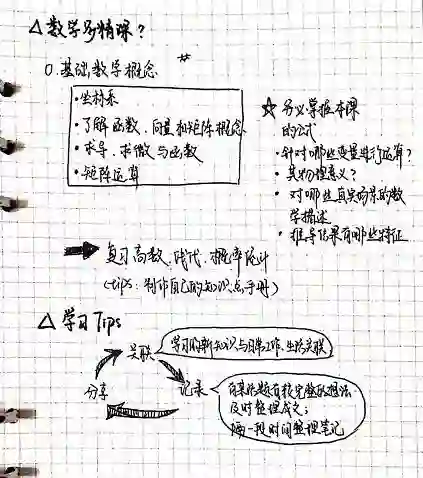 △ 数学多精深？
0. 基础数学概念
• 坐标系
• 了解函数、向量和矩阵概念
• 求导、求微与函数
• 矩阵运算
☆ 务必掌握本课
的公式
• 针对哪些变量进行运算？
• 其物理意义？
• 对哪些真实场景的数
学描述
• 推导结果有哪些特征
➡ 复习高数、线代、概率统计
(tips: 制作自己的知识点手册)
△ 学习Tips
关联
学习的新知识与日常工作、生活关联
分享
记录
有某话题有较完整的想法
及时整理成文；
隔一段时间整理笔记